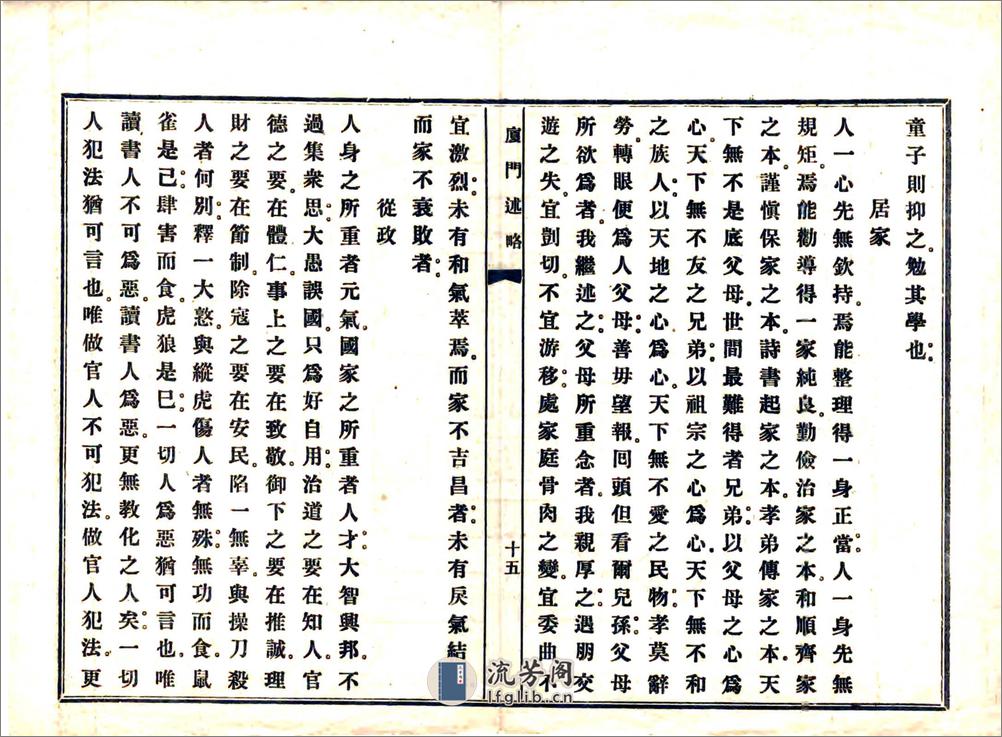 童子則抑之。勉其學也。
居家
人一心先無欽持。焉能整理得一身正當。人一身先無
規矩。焉能勸導得一家純良。勤儉治家之本。和順齊家
之本。謹慎保家之本。詩書起家之本。孝弟傳家之本。天
下無不是底父母。世間最難得者兄弟。以父母之心爲
心。天下無不友之兄弟。以祖宗之心爲心。天下無不和
之族人。以天地之心爲心。天下無不愛之民物。孝莫辭
勞。轉眼便爲人父母。善毋望報。囘頭但看爾兒孫。父母
所欲爲者。我繼述之。父母所重念者。我親厚之。遇朋交
遊之失。宜剴切。不宜游移。處家庭骨肉之變。宜委曲。不
廈門述略 十五
宜激烈。未有和氣萃焉。而家不吉昌者。未有戾氣結
而家不衰敗者。
從政
人身之所重者元氣。國家之所重者人才。大智興邦。不
過集衆思。大愚誤國。只爲好自用。治道之要在知人。官
德之要。在體仁。事上之要在致敬。御下之要在推誠。理
財之要在節制。除寇之要在安民。陷一無辜。與操刀殺
人者何別。釋一大憝。與縱虎傷人者無殊。無功而食。鼠
雀是已。肆害而食。虎狼是巳。一切人爲惡。猶可言也。唯
讀書人不可爲惡。讀書人爲惡。更無教化之人矣。一切
人犯法。猶可言也。唯做官人不可犯法。做官人犯法。更
流芳阁
lfglib.cn